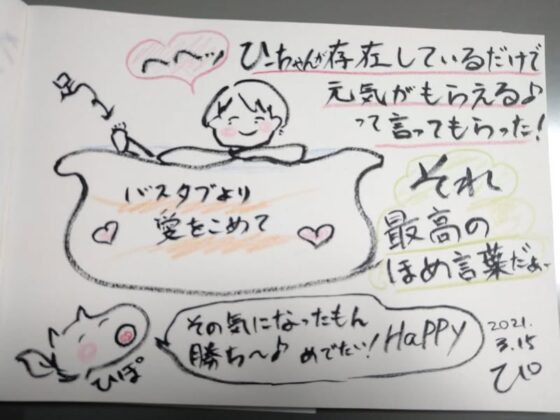 へへッ
ひーちゃんが存在しているだけで
元気がもらえる♪
って言ってもらった!
足
それ
最高の
ほめ言葉だぁ〜
バスタブより
愛をこめて
その気になったもん
勝ち〜♪ めでたい! HaPPY
ひぽ
2021.
3.15